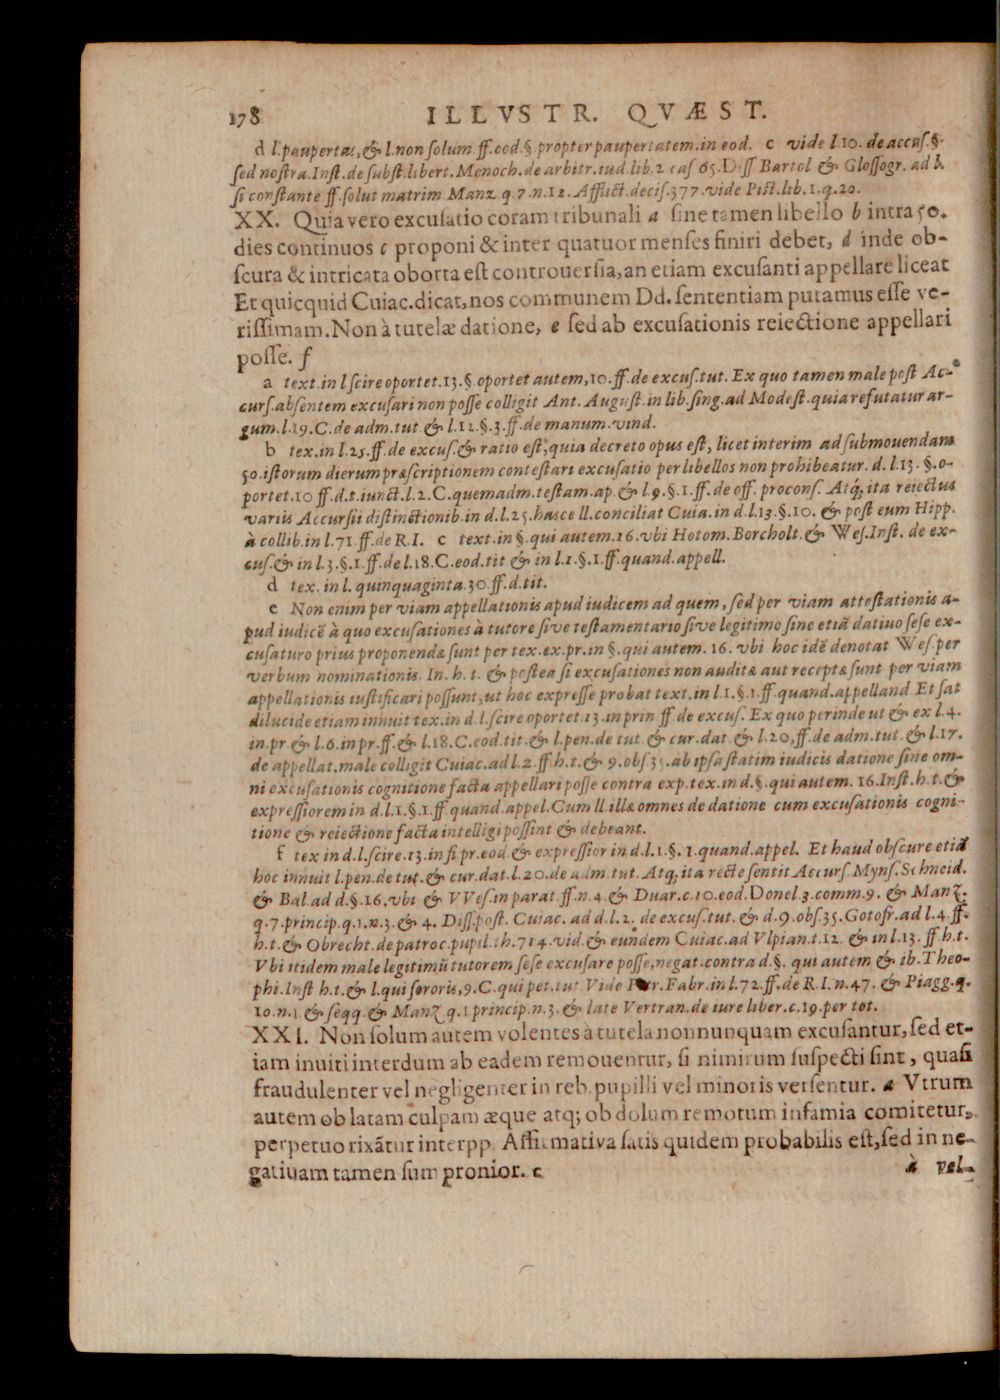 178 ILLVSTR. QVÆST.
d l.paupertas, & l.non solum.ff.eod.§.propter paupertatem.in eod. c vide l.10. de accus.§.
sed nostra.Inst.de subst.libert.Menoch.de arbitr.iud.lib.2 cas 65.Diss Bartol & Glossogr. ad l.
si constante ff.solut matrim Manz q.7.n.12. Afflict.decis.377.vide Pict.lib.1.q.20.
XX. Quia vero excusatio coram tribunali a sine tamen libello b intra 50.
dies continuos c proponi & inter quatuor menses finiri debet, d inde ob-
scura & intricata oborta est controuersia, an etiam excusanti appellare liceat
Et quicquid Cuiac.dicat, nos communem Dd. sententiam putamus esse ve-
rissimam. Non à tutelæ datione, e sed ab excusationis reiectione appellari
posse. f
a text.in l scire oportet.13.§.oportet autem,10.ff.de excus.tut. Ex quo tamen male post Ac-
curs.absentem excusari non posse colligit Ant. August.in lib.sing.ad Modest.quia refutatur ar-
gum.l.19.C.de adm.tut & l.12.§.3.ff.de manum.vind.
b tex.in l.25.ff.de excus.& ratio est, quia decreto opus est, licet interim ad submouendam
50.istorum dierum præscriptionem contestari excusatio per libellos non prohibeatur. d.l.13.§.o-
portet.10 ff.d.t.iunct.l.2.C.quemadm.testam.ap.& l.9.§.1.ff.de off.procons. Atq; ita reiectus
variis Accursii distinctionib.in d.l.25.hasce ll.conciliat Cuia.in d.l.13.§.10. & post eum Hipp.
à collib.in l.71.ff.de R.I. c text.in §.qui autem.16.vbi Hotom.Borcholt.& Wes.Inst. de ex-
cus.& in l.3.§.1.ff.de l.18.C.eod.tit & in l.1.§.1.ff.quand.appell.
d tex. in l. quinquaginta.30.ff.d.tit.
e Non enim per viam appellationis apud iudicem ad quem, sed per viam attestationis a-
pud iudicẽ à quo excusationes à tutore sive testamentario sive legitimo sine etiã dativo sese ex-
cusaturo prius proponendæ sunt per tex.ex.pr.in §.qui autem. 16. vbi hoc idẽ denotat Wes.per
verbum nominationis. In. h. t. & postea si excusationes non auditæ aut receptæ sunt per viam
appellationis iustificari possunt, ut hoc expresse probat text.in l.1.§.1.ff.quand.appelland Et sat
dilucide etiam innuit tex.in d.l.scire oportet.13.in prin ff.de excus. Ex quo perinde ut & ex l.4.
in.pr & l.6.in pr.ff.& l.18.C.eod.tit.& l.pen.de tut & cur.dat & l.20,ff.de adm.tut & l.17.
de appellat.male colligit Cuiac.ad l.2.ff.h.t.& 9.obs 35.ab ipsa statim iudicis datione sine om-
ni excusationis cognitione facta appellari posse contra exp.tex.in d.§.qui autem. 16.Inst.h.t.&
expressiorem in d.l.1.§.1.ff.quand.appel.Cum ll.illæ omnes de datione cum excusationis cogni-
tione & reiectione facta intelligi possint & debeant.
f tex in d.l.scire.13.in fi pr.eod.& expressior in d.l.1.§.1.quand.appel. Et haud obscure etiã
hoc innuit l.pen.de tut.& cur.dat.l.20.de adm.tut. Atq; ita recte sentit Accurs.Myns.Schneid.
& Bal.ad d.§.16.vbi & VVes.in parat.ff.n.4.& Duar.c.10.eod.Donel.3.comm.9. & Manz.
q.7.princip.q.1.n.3.& 4. Diss.post. Cuiac. ad d.l.2. de excus.tut.& d.9.obs.35.Gotofr.ad l.4.ff.
h.t.& Obrecht.de patroc.pupil.th.714.vid.& eundem Cuiac.ad Vlpian.t.12. & in l.13.ff.h.t.
Vbi itidem male legitimũ tutorem sese excusare posse,negat.contra d.§. qui autem & ib.Theo-
phi.Inst h.t.& l.qui sororis,9.C.qui pet.tut.Vide Fabr.in l.72.ff.de R.I.n.47. & Piagg.q.
10.n.1 & seqq.& Manz q.1 princip.n.3.& late Vertran.de iure liber.c.19.per tot.
XXI. Non solum autem volentes à tutela nonnunquam excusantur, sed et-
iam inuiti interdum ab eadem remouentur, si nimirum suspecti sint, quasi
fraudulenter vel negligenter in reb.pupilli vel minoris versentur. a Vtrum
autem ob latam culpam æque atq; ob dolum remotum infamia comitetur,
perpetuo rixãtur interpp. Affirmativa satis quidem probabilis est, sed in ne-
gatiuam tamen sum pronior. c
à vel-